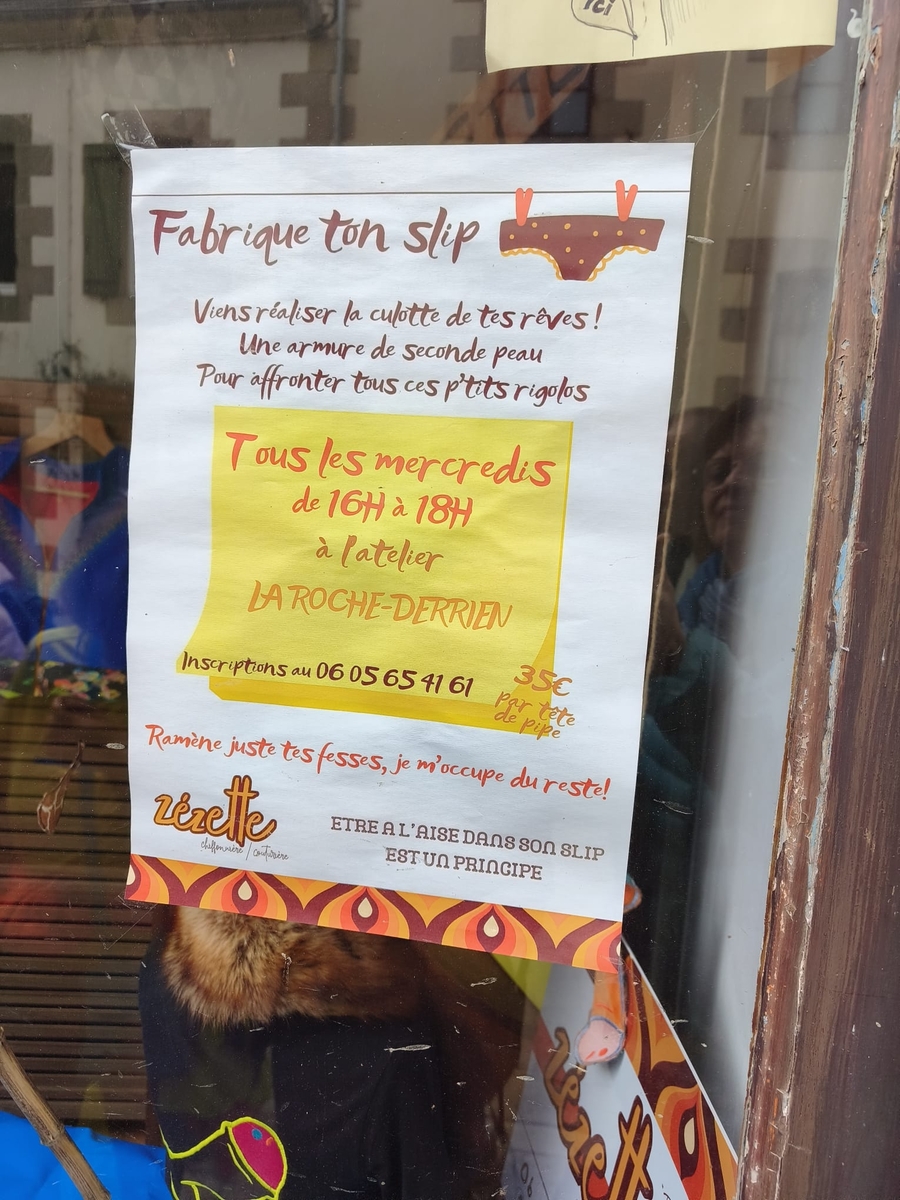 ici
Fabrique ton slip
Viens réaliser la culotte de tes rêves !
Une armure de seconde peau
Pour affronter tous ces p'tits rigolos
Tous les mercredis
de 16H à 18H
à l'atelier
LA ROCHE-DERRIEN
Inscriptions au 06 05 65 41 61
35€
par tête
de pipe
Ramène juste tes fesses, je m'occupe du reste!
zézette
chiffonnière / couturière
ETRE A L'AISE DANS SON SLIP
EST UN PRINCIPE
zézette